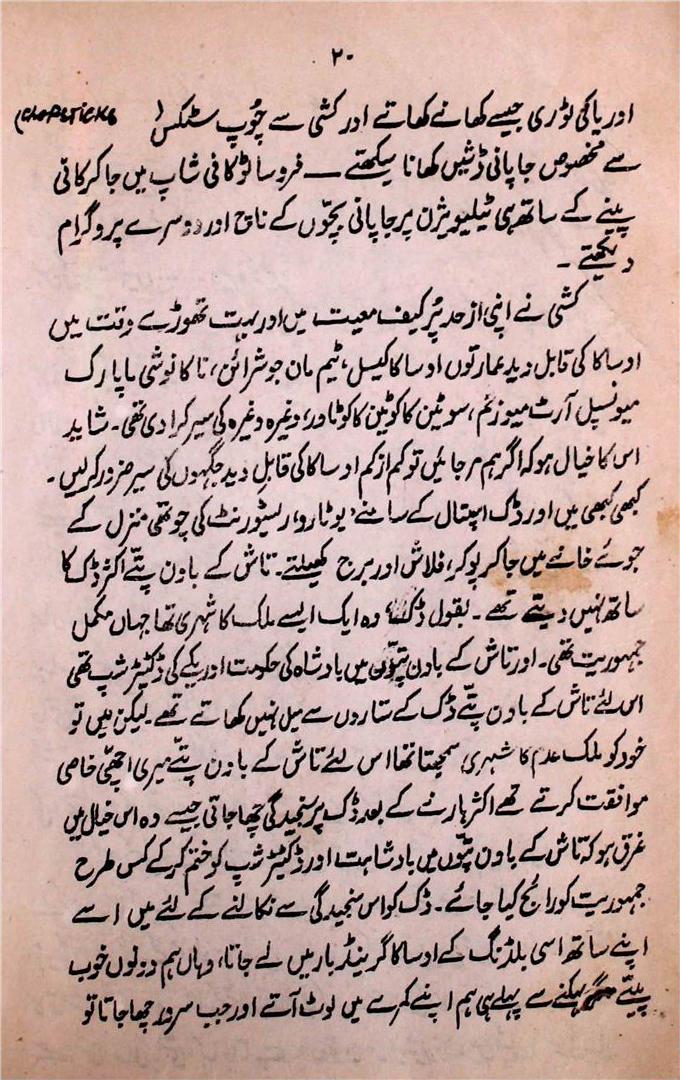 ۲۰
اور یاکی لوڑی جیسے کھانے کھاتے اور کشی سے چُوپ سٹکس (Chopsticks)
سے مخصوص جاپانی ڈشیں کھانا سیکھتے — فروسائو کافی شاپ میں جاکر کافی
پینے کے ساتھ ہی ٹیلیویژن پر جاپانی بچّوں کے ناچ اور دوسرے پروگرام
دیکھتے ۔
کشی نے اپنی از حد پُر کیف معیت میں اور بہت تھوڑے وقت میں
اوساکا کی قابل دید عمارتوں اوساکا کیسل، ٹیم مان جو شرائن، ناکانوشی ماپارک
میونسپل آرٹ میوزئم، سوٹین کاکوٹین کاکو ٹاور، وغیرہ وغیرہ کی سیر کرا دی تھی۔ شاید
اس کا خیال ہو کہ اگر ہم مر جائیں تو کم از کم اوساکا کی قابلِ دید جگہوں کی سیر ضرور کرلیں۔
کبھی کبھی میں اور ڈک اسپتال کے سامنے، یوٹارو، ریسٹورنٹ کی چوتھی منزل کے
جوئے خانے میں جاکر پوکر، فلاش اور برج کھیلتے۔ تاش کے باون پتّے اکثر ڈک کا
ساتھ نہیں دیتے تھے۔ بقول ڈک، وہ ایک ایسے ملک کا شہری تھا جہاں مکمل
جمہوریت تھی۔ اور تاش کے باون پتّوں میں بادشاہ کی حکومت اور یکے کی ڈکٹیٹر شپ تھی
اس لئے تاش کے باون پتّے ڈک کے ستاروں سے میل نہیں کھاتے تھے۔ لیکن میں تو
خود کو ملک عدم کا شہری سمجھتا تھا اس لئے تاش کے باون پتّے میری اچھّی خاصی
موافقت کرتے تھے اکثر ہارنے کے بعد ڈک پر سنجیدگی چھا جاتی جیسے وہ اس خیال میں
غرق ہو کہ تاش کے باون پتّوں میں بادشاہت اور ڈکٹیٹر شپ کو ختم کر کے کس طرح
جمہوریت کو رائج کیا جائے۔ ڈک کو اس سنجیدگی سے نکالنے کے لئے میں اسے
اپنے ساتھ اسی بلڈنگ کے اوساکا گرینڈ بار میں لے جاتا، وہاں ہم دونوں خوب
پیتے بہکنے سے پہلے ہی ہم اپنے کمرے میں لوٹ آتے اور جب سرور چھا جاتا تو